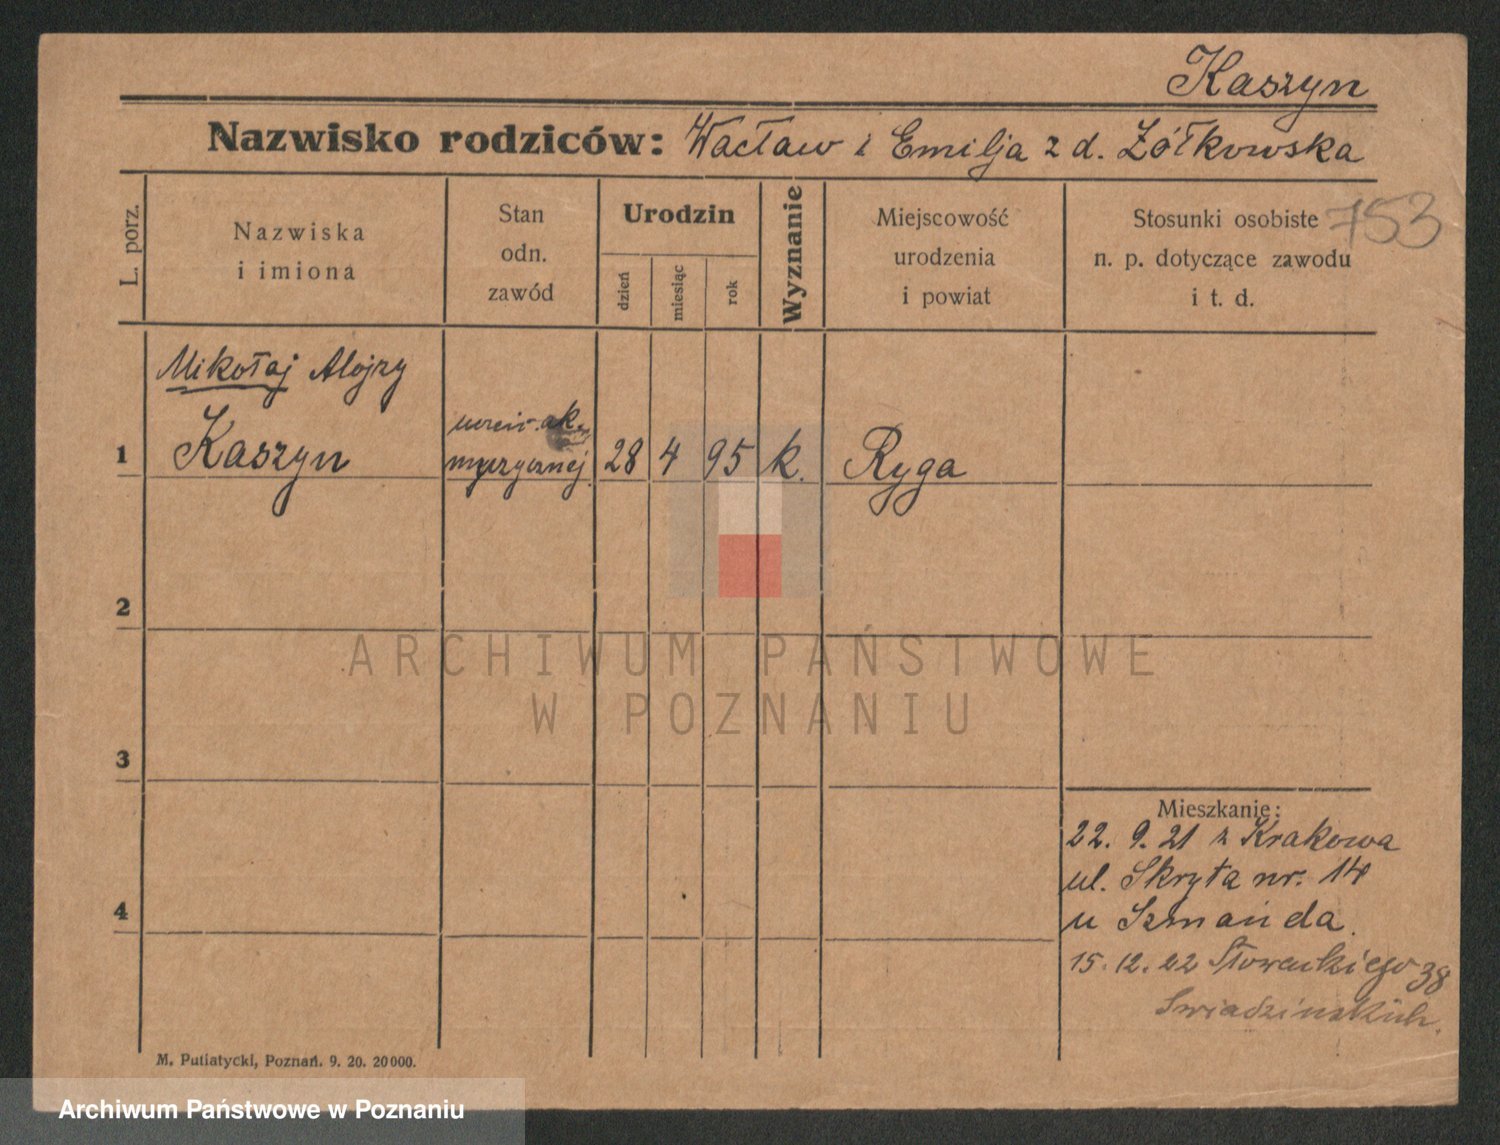 Kaszyn
Nazwisko rodziców: Wacław i Emilja z d. Żółkowska
753
L. porz.
Nazwiska
i imiona
Stan
odn.
zawód
Urodzin
dzień
miesiąc
rok
Wyznanie
Miejscowość
urodzenia
i powiat
Stosunki osobiste
n. p. dotyczące zawodu
i t. d.
Mikołaj Alojzy
1 Kaszyn
uczeń ak.
muzycznej
28 4 95 k. Ryga
2
3
4
Mieszkanie:
22. 9. 21 z Krakowa
ul. Skryta nr. 14
u Szmańda
15. 12. 22 Słowackiego 38
Swiadzinskich.
M. Putiatycki, Poznań. 9. 20. 20000.
ARCHIWUM PAŃSTWOWE
W POZNANIU
Archiwum Państwowe w Poznaniu